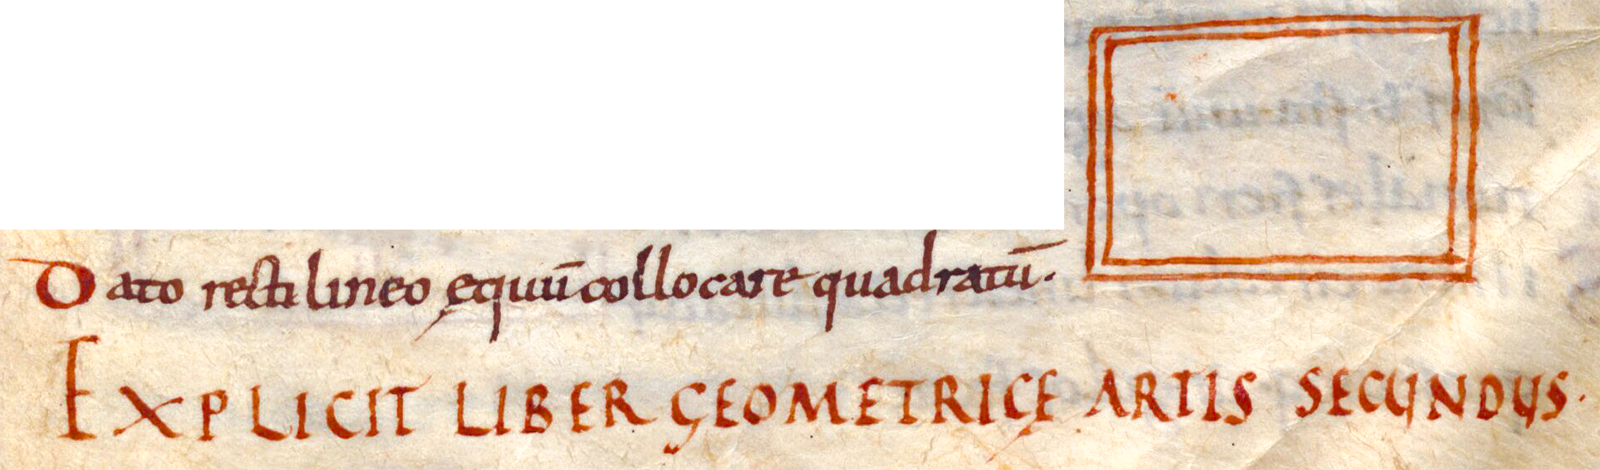 Dato rectilineo ęquū collocare quadratū.
EXPLICIT LIBER GEOMETRICĘ ARTIS SECUNDUS.